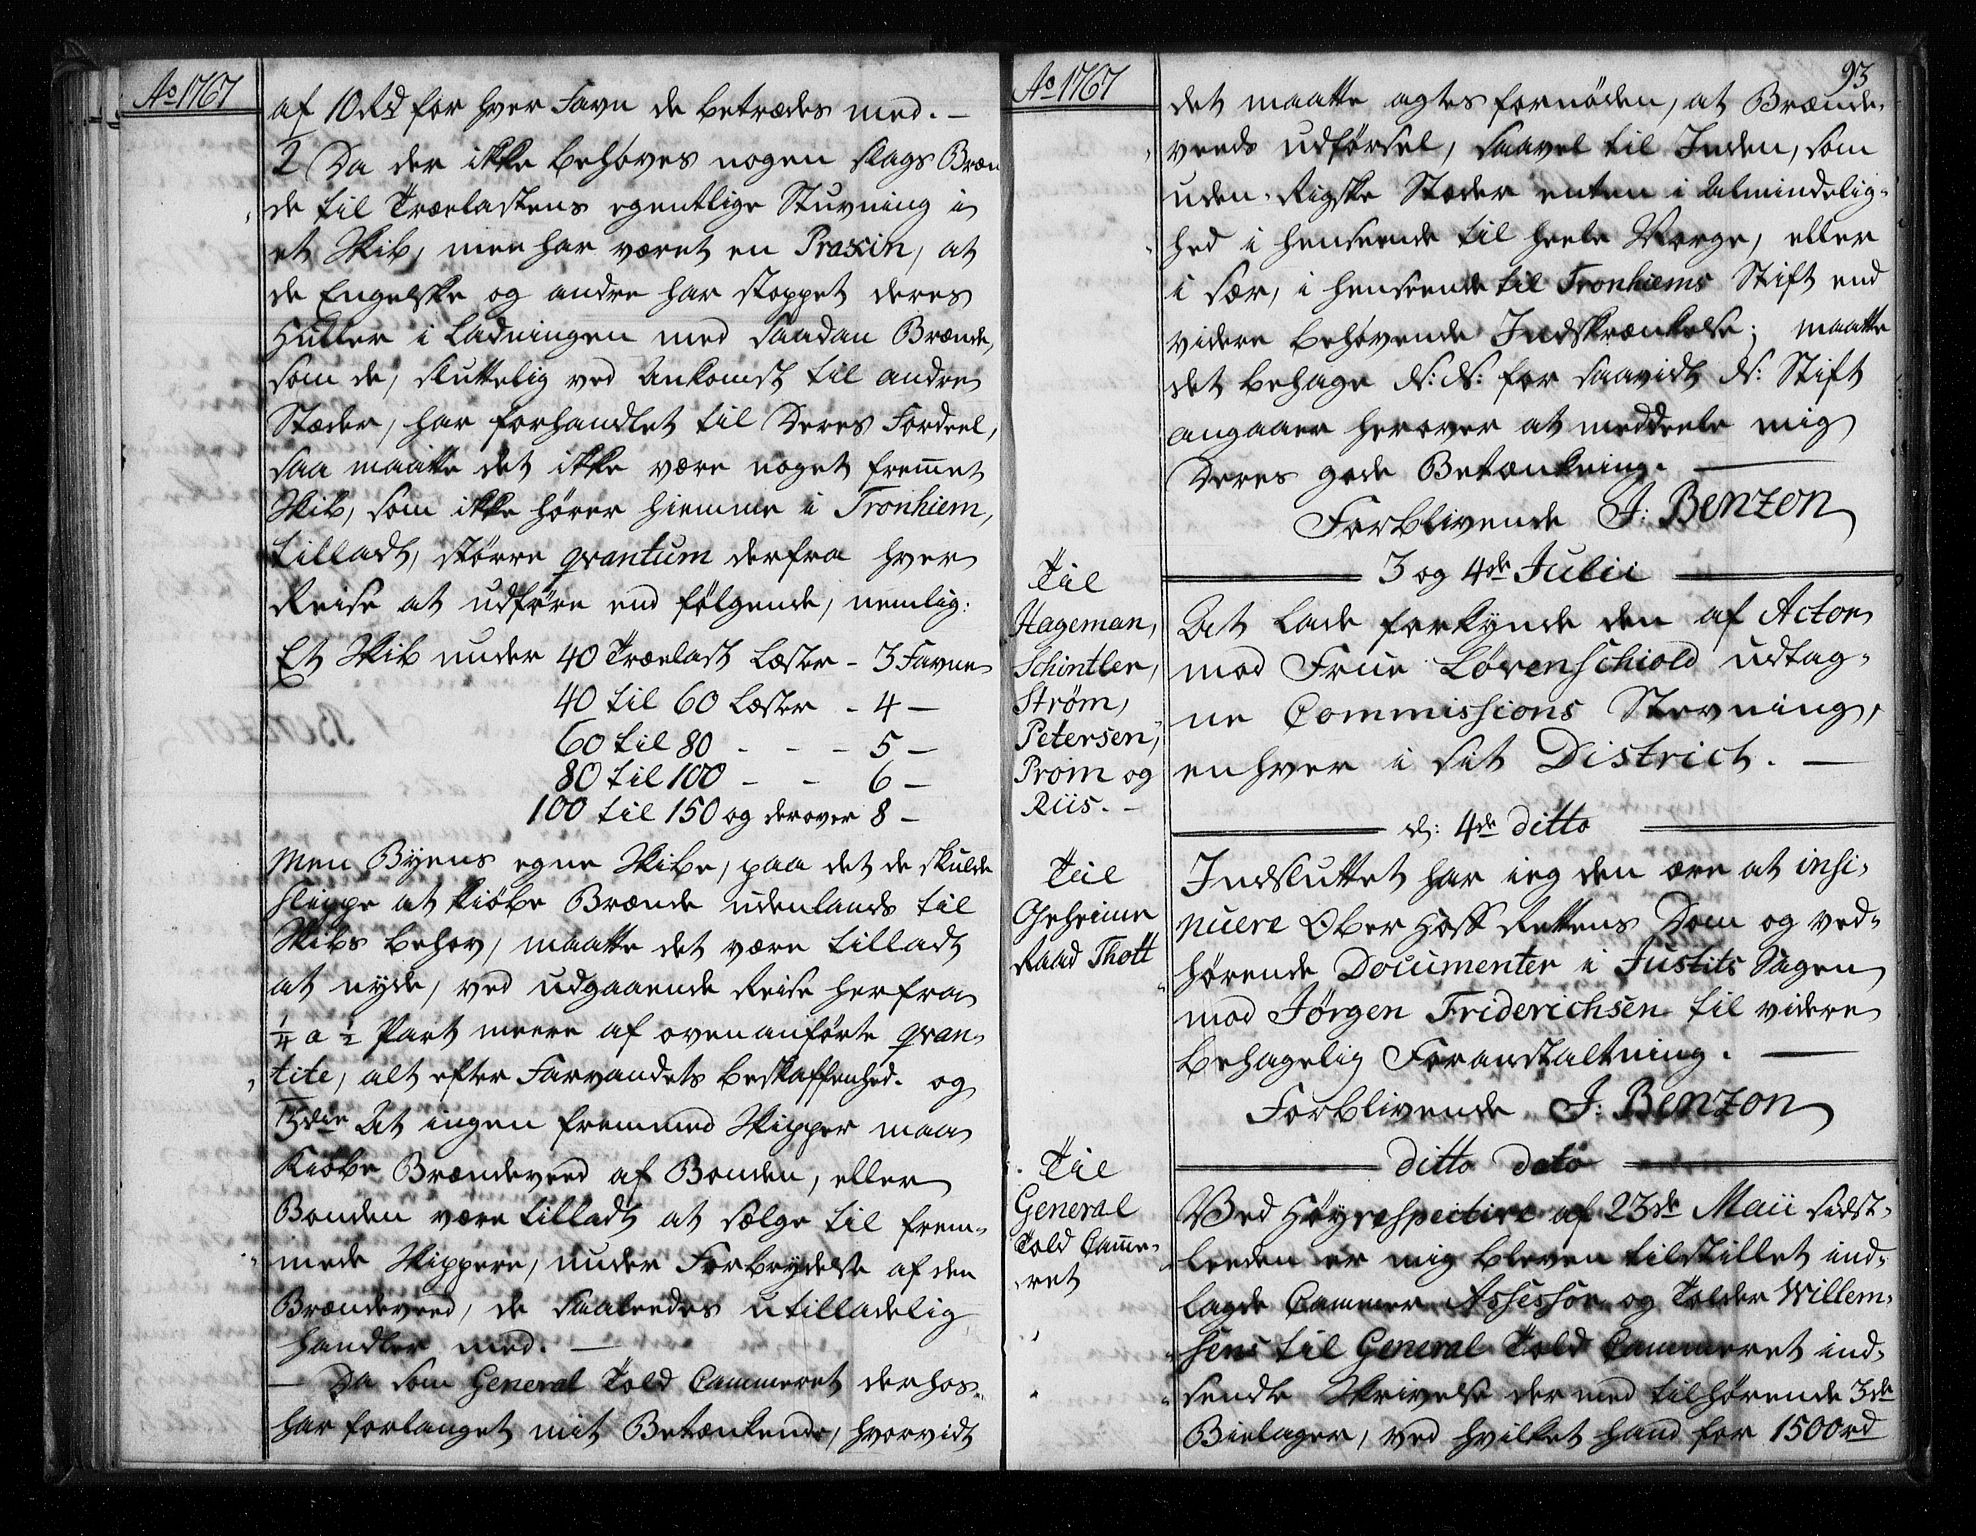 Ao 1767
af 10 Rd for hver Favn de betrædes med. –
2 Da der ikke behøves nogen slags Bræn
de til Trælastens egentlige Stuvning i
et Skib, men har været en Praxin, at
de Engelske og andre har stoppet deres
Huller i Ladningen med saadan Brænde,
som de, sluttelig ved Ankomst til andre
Stæder, har forhandlet til Deres Fordeel,
saa maatte det ikke være noget fremmet
Skib, som ikke hører hiemme i Tronhiem,
tilladt, større qvantum derfra hver
Reise at udføre end følgende, nemlig:
Et Skib under 40 Trælast Læster – 3 Favne
40 til 60 Læster – 4 –
60 til 80 – – – 5 –
80 til 100 – – 6 –
100 til 150 og derover 8 –
Men Byens egne Skibe, paa det de skulde
slippe at kiøbe Brænde udenlands til
Skibs behov, maatte det være tilladt
at nyde, ved udgaaende Reise herfra
1/4 a 1/2 Part meere af ovenanførte qvan-
tite, alt efter Farvandets beskaffenhed. og
3die At ingen fremmed Skipper maa
Kiøbe Brændeveed af Bonden, eller
Bonden være tilladt at sælge til frem-
mede Skippere, under Forbrydelse af den
Brændeveed, de saaledes utilladelig
handler med. –
– Da som General Told Cammeret derhos
har forlanget mit Betænkende, hvorvidt
Ao 1767
93
det maatte agtes fornøden, at Brænde-
veeds udførsel, saavel til Inden, som
uden-Rigske Stæder enten i Almindelig-
hed i henseende til heele Norge, eller
i sær, i henseende til Tronhiems Stift end
videre behøvende Indskrænkelse; maatte
det behage ds: ds: for saavidt ds: Stift
angaaer herover at meddeele mig
Deres gode Betænkning. –
Forblivende J: Benzon
3 og 4de Julii
Til
Hageman,
Schintler,
Strøm,
Petersen,
Prom og
Riis. –
At lade forkynde den af Actor
mod Frue Løvenschiold udtag-
ne Commissions Stevning,
enhver i sit District. –
d: 4de ditto
Til
Geheime
Raad Thott
Indsluttet har ieg den ære at insi-
nuere Ober Hoff Rettens Dom og ved-
hørende Documenter i Justits Sagen
mod Jørgen Friderichsen til videre
behagelig Foranstaltning. –
Forblivende J: Benzon
ditto dato
Til
General
Told Camme-
ret
Ved Høyrespective af 23de Maii sidst-
leeden er mig bleven tilstillet ind-
lagde Cammer Assessor og Tolder Willem-
sens til General Told Cammeret ind-
sendte Skrivelse der med tilhørende 3de
Bielager, ved hvilket hand for 1500 rd